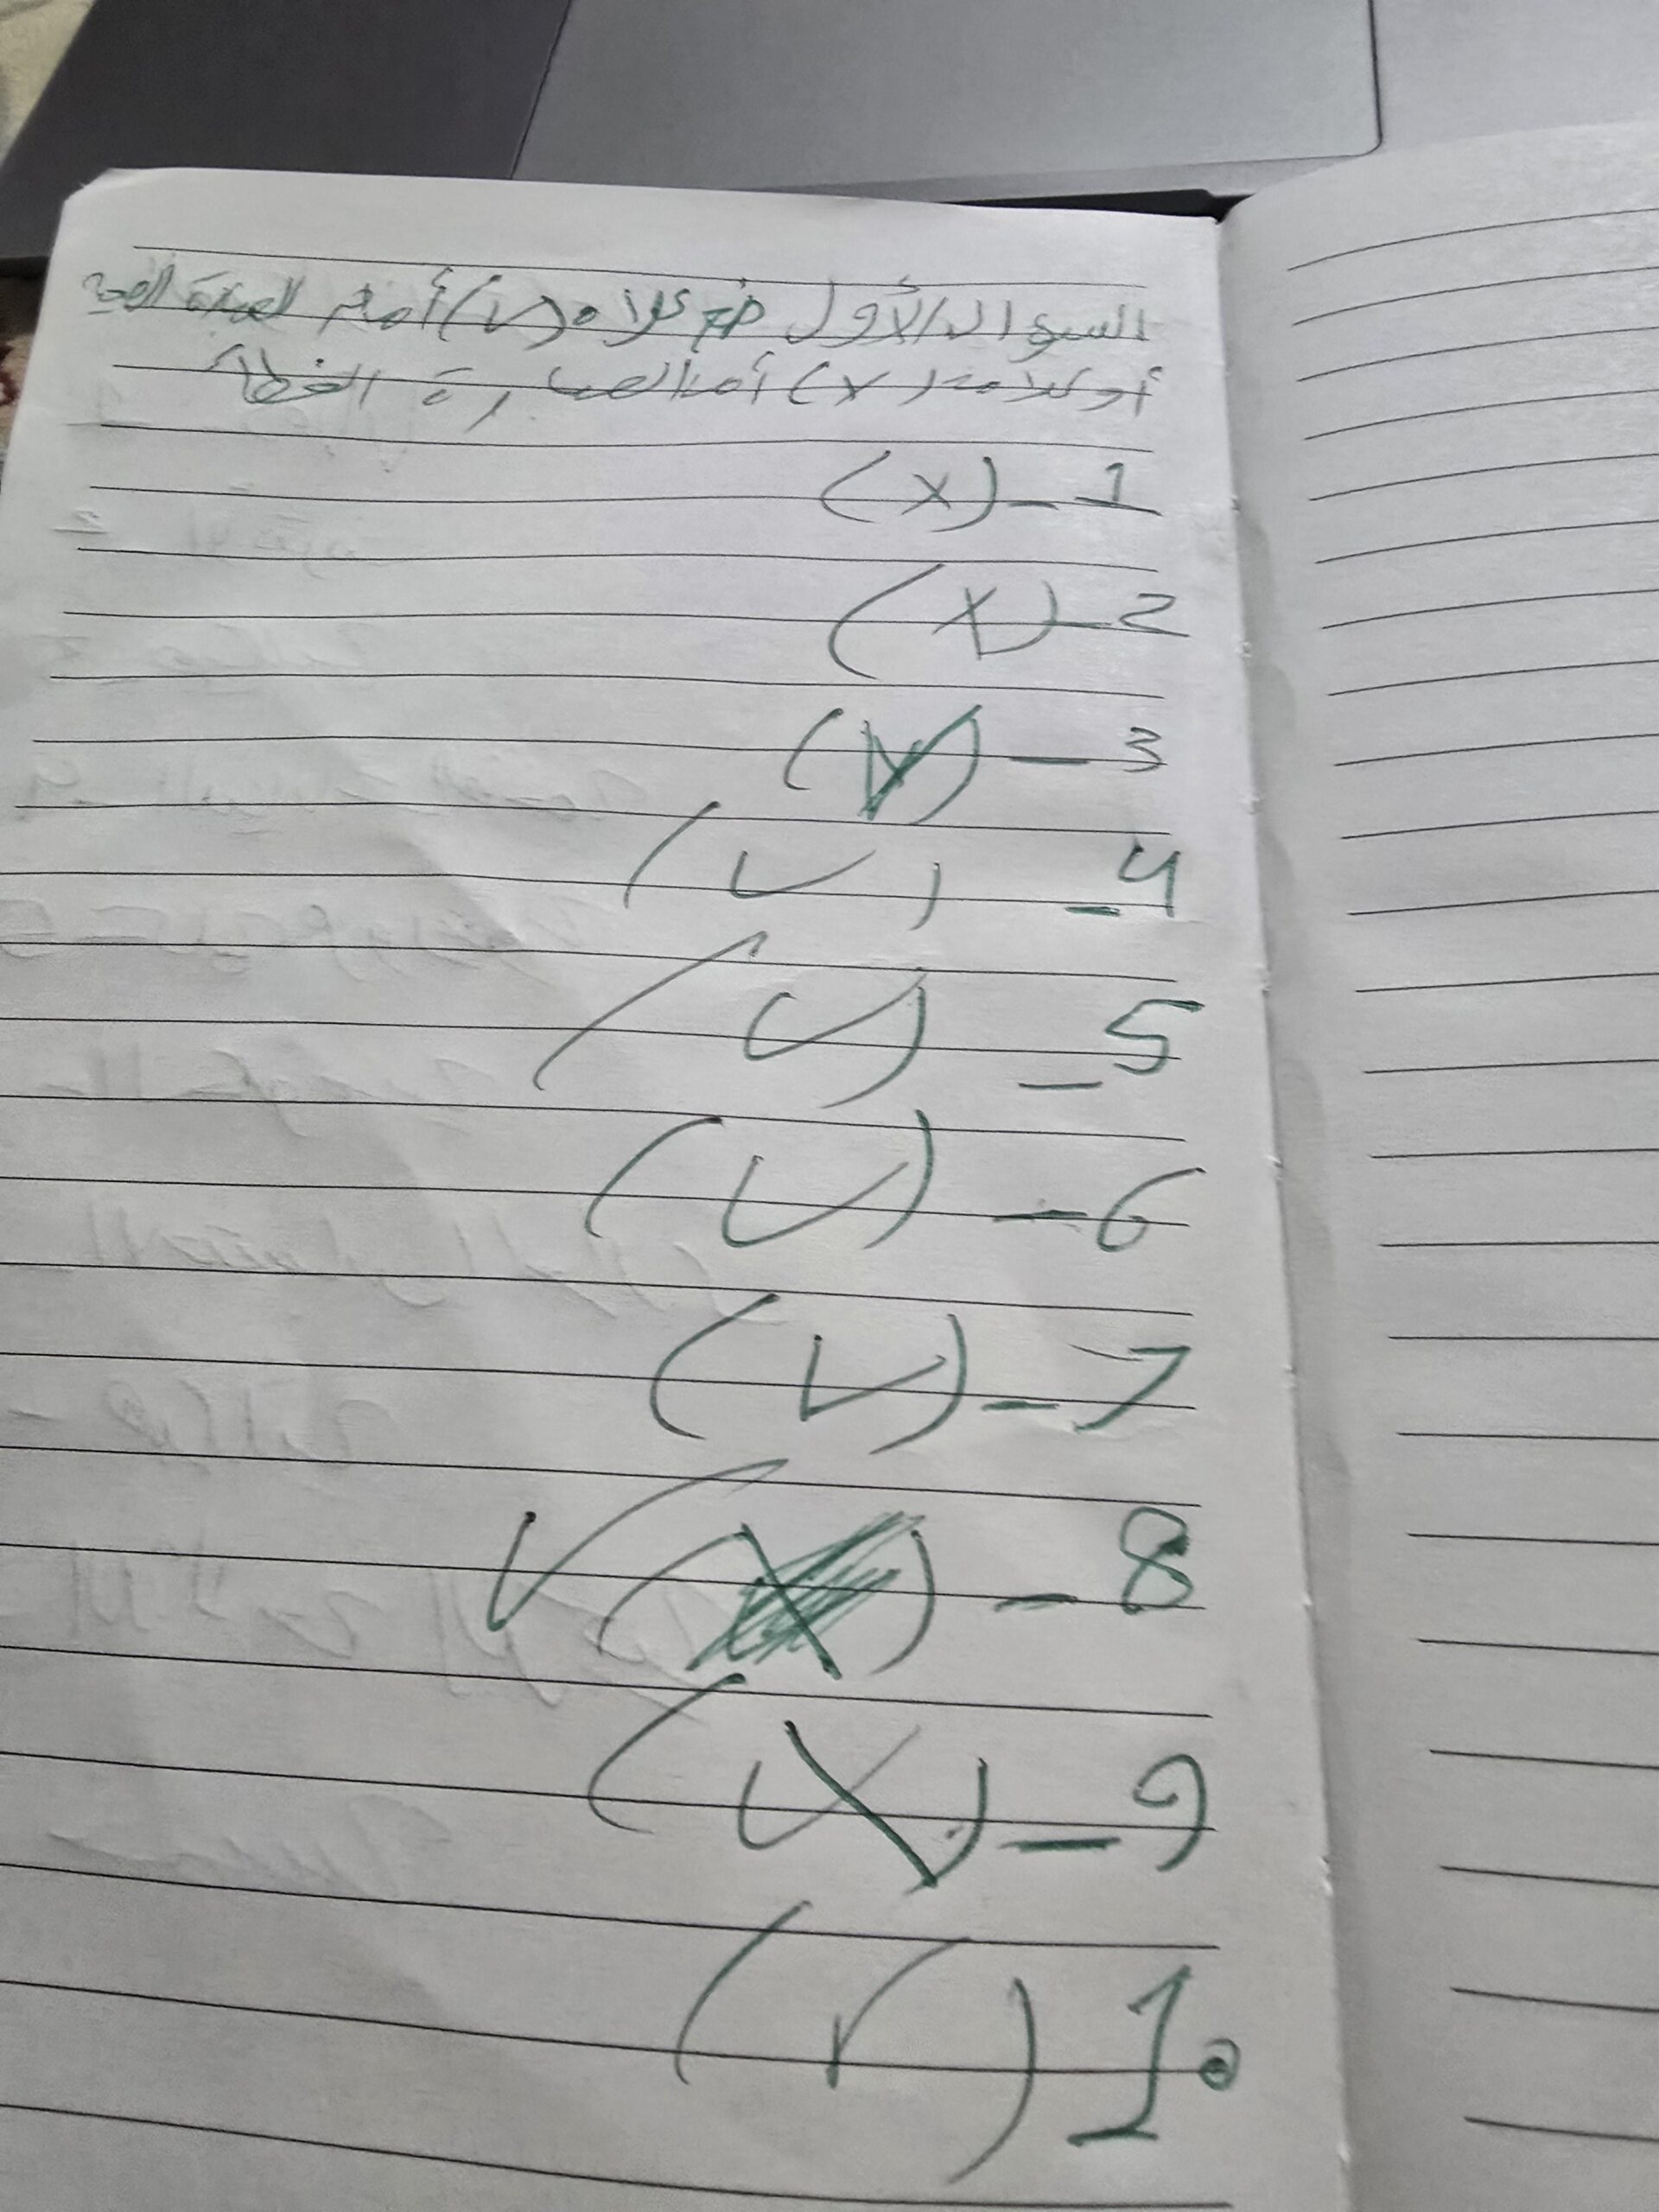 السؤال الأول ضع علامة (√) أمام العبارة الصحيحة
أو علامة (x) أمام العبارة الخطأ
1 - (x)
2 - (x)
3 - (√)
4 - (√)
5 - (√)
6 - (√)
7 - (√)
8 - (x) √
9 - (x)
10 (√)